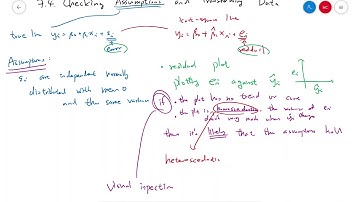 7.4. Checking Assumptions and Transforming Data
least-square line
true line yᵢ = β₀ + β₁xᵢ + εᵢ
yᵢ = β̂₀ + β̂₁xᵢ + eᵢ
error
residual
Assumptions:
εᵢ are independent normally
distributed with mean 0
and the same variance
• residual plot
plotting eᵢ against ŷᵢ
eᵢ
ŷᵢ
if
• the plot has no trend or curve
• the plot is homoscedastic, the
don't vary much when ŷᵢ change
then it's likely that the assumptions hold
heteroscedastic
visual inspection